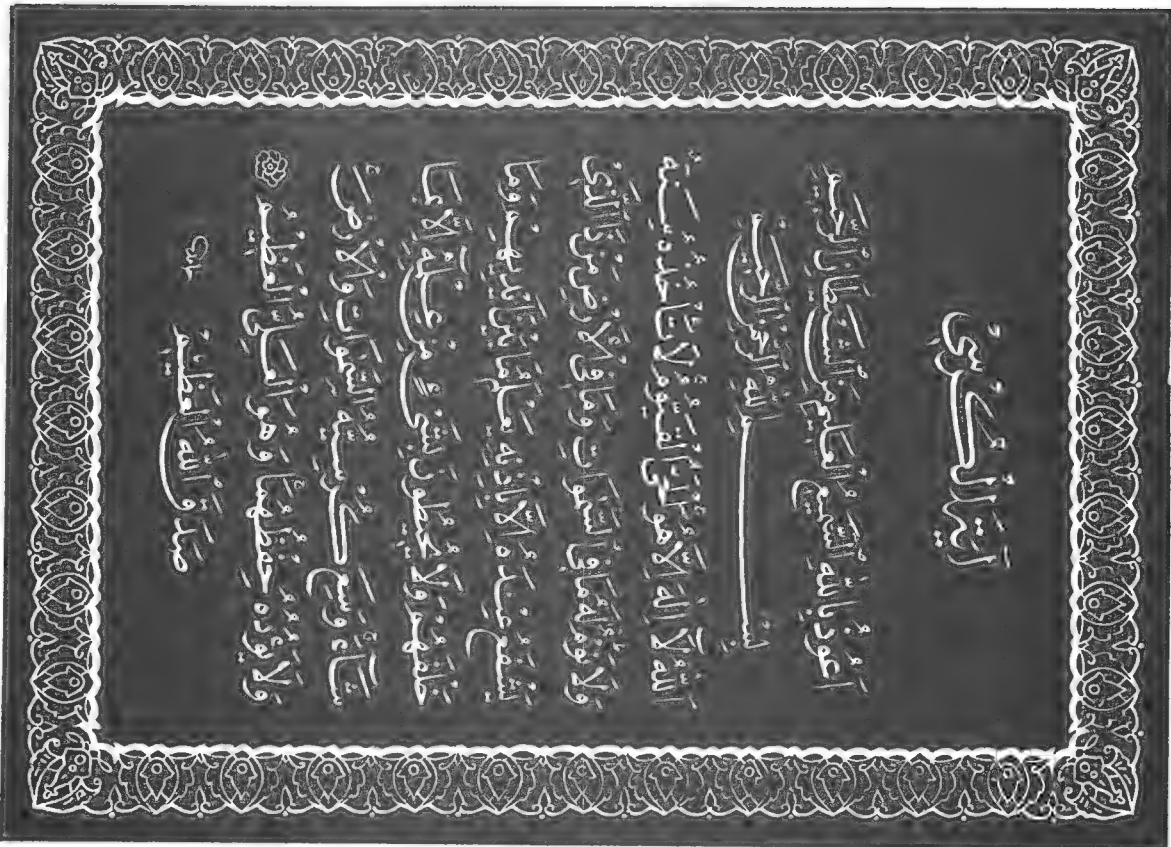 آيَةُ الْكُرْسِيِّ
اَعُوذُ بِاللّٰهِ السَّمِيعِ الْعَلِيمِ مِنَ الشَّيْطَانِ الرَّجِيمِ
بِسْمِ اللّٰهِ الرَّحْمٰنِ الرَّحِيمِ
اَللّٰهُ لَآ اِلٰهَ اِلَّا هُوَ الْحَيُّ الْقَيُّومُ لَا تَأْخُذُهُ سِنَةٌ
وَلَا نَوْمٌ لَهُ مَا فِي السَّمٰوَاتِ وَمَا فِي الْاَرْضِ مَنْ ذَا الَّذِي
يَشْفَعُ عِنْدَهُ اِلَّا بِاِذْنِهِ يَعْلَمُ مَا بَيْنَ اَيْدِيهِمْ وَمَا
خَلْفَهُمْ وَلَا يُحِيطُونَ بِشَيْءٍ مِنْ عِلْمِهِ اِلَّا بِمَا
شَآءَ وَسِعَ كُرْسِيُّهُ السَّمٰوَاتِ وَالْاَرْضَ
وَلَا يَؤُدُهُ حِفْظُهُمَا وَهُوَ الْعَلِيُّ الْعَظِيمُ
صَدَقَ اللّٰهُ الْعَظِيمُ